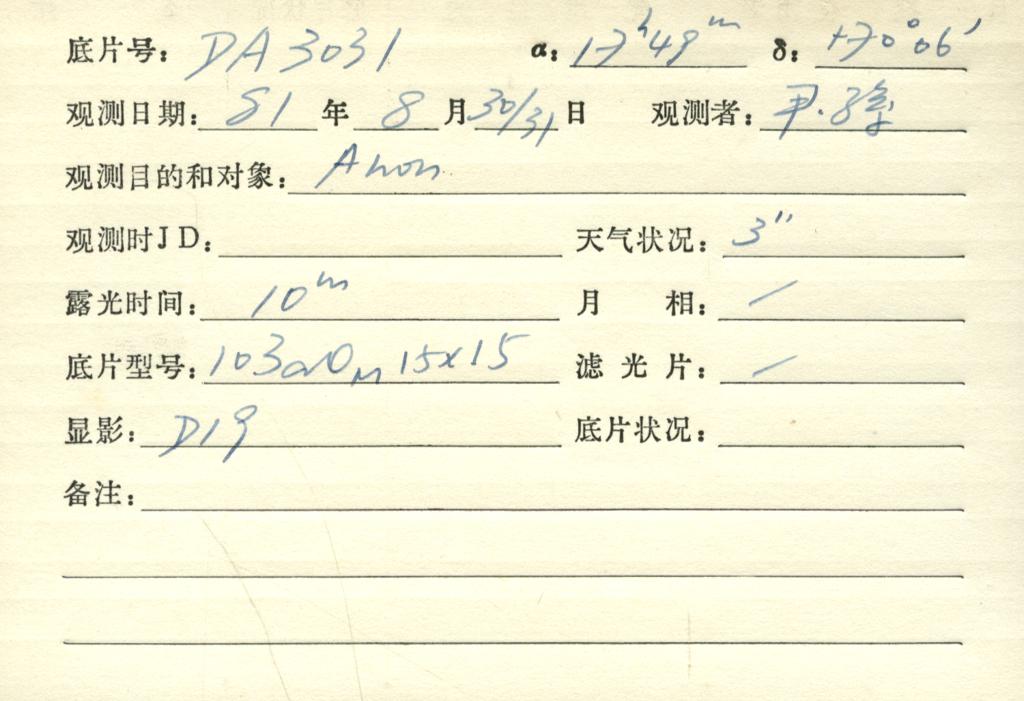 底片号: DA3031 α: 17ʰ49ᵐ δ: +70°06′
观测日期: 81 年 8 月 30/31 日 观测者: 尹.
观测目的和对象: Anon
观测时JD: 天气状况: 3″
露光时间: 10ᵐ 月 相: /
底片型号: 103aO 15×15 滤光片: /
显影: D19 底片状况:
备注: